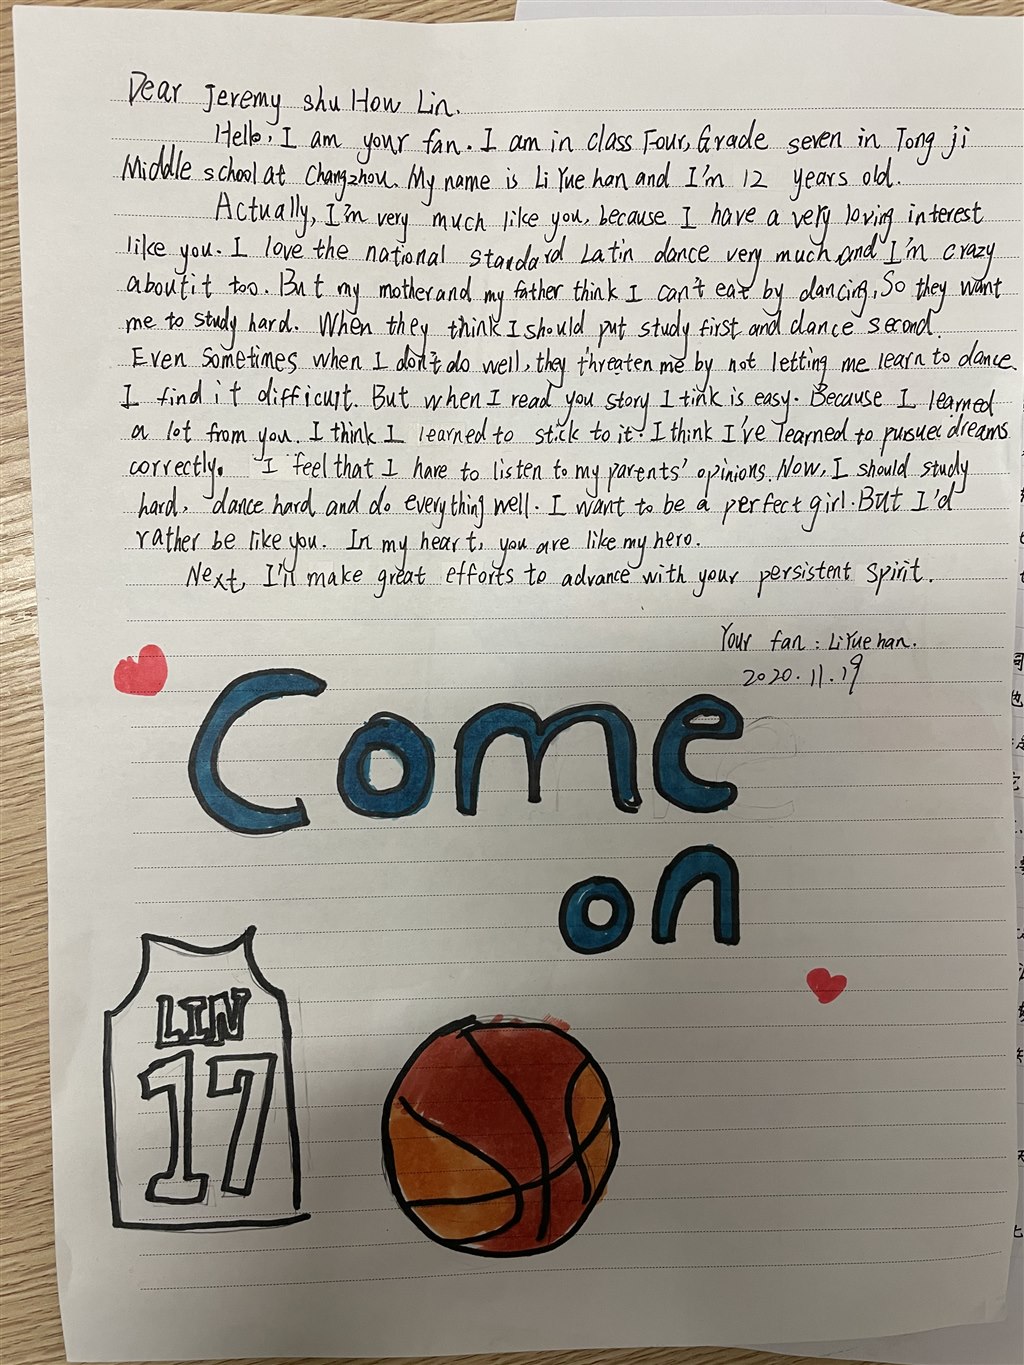 Dear Jeremy shu How Lin.
Hello, I am your fan. I am in class Four, Grade seven in Tong ji
Middle school at Changzhou. My name is Li Yue han and I'm 12 years old.
Actually, I'm very much like you, because I have a very loving interest
like you. I love the national standard Latin dance very much, and I'm crazy
about it too. But my mother and my father think I can't eat by dancing, So they want
me to study hard. When they think I should put study first and dance second.
Even sometimes when I don't do well, they threaten me by not letting me learn to dance.
I find it difficult. But when I read you story I tink is easy. Because I learned
a lot from you. I think I learned to stick to it. I think I've learned to pursue dreams
correctly. I feel that I have to listen to my parents' opinions. Now, I should study
hard, dance hard and do everything well. I want to be a perfect girl. But I'd
rather be like you. In my heart, you are like my hero.
Next, I'll make great efforts to advance with your persistent spirit.
Your fan: Li Yue han.
2020.11.19
Come
on
LIN
17